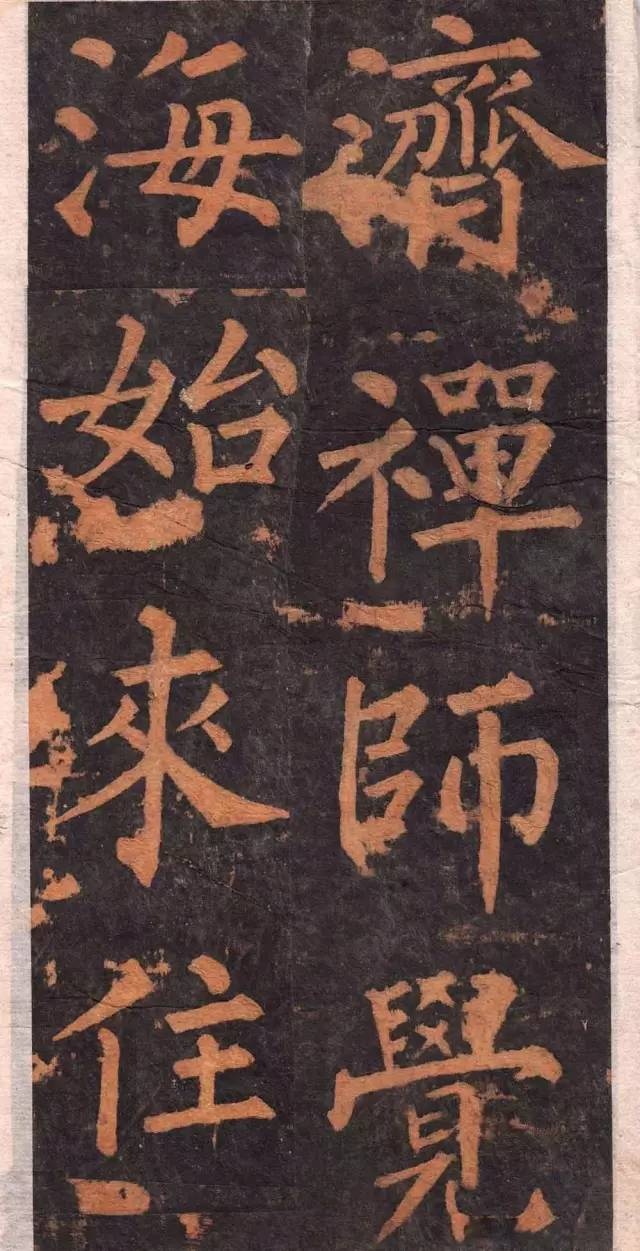 濟禪師覺
海始來住